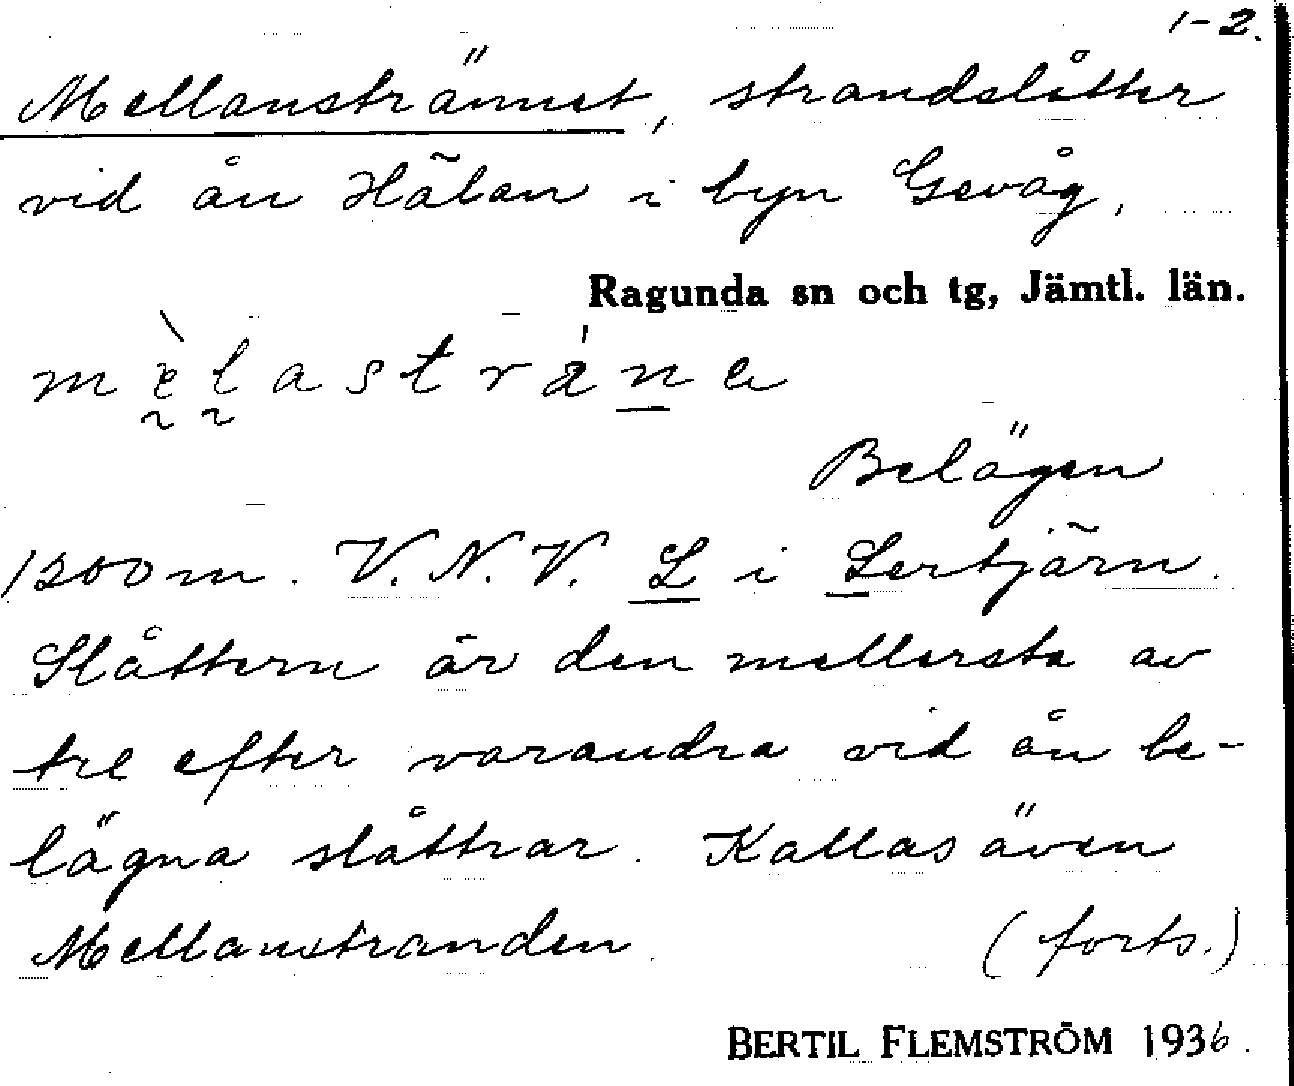 1-2.
Mellanstrännet, strandslåtter
vid ån Hälan i byn Gevåg,
Ragunda sn och tg, Jämtl. län.
mèlastráne
Belägen
1300 m. V.N.V. L i Lertjärn.
Slåttern är den mellersta av
tre efter varandra vid ån be-
lägna slåttrar. Kallas även
Mellanstranden. (forts.)
BERTIL FLEMSTRÖM 1936.